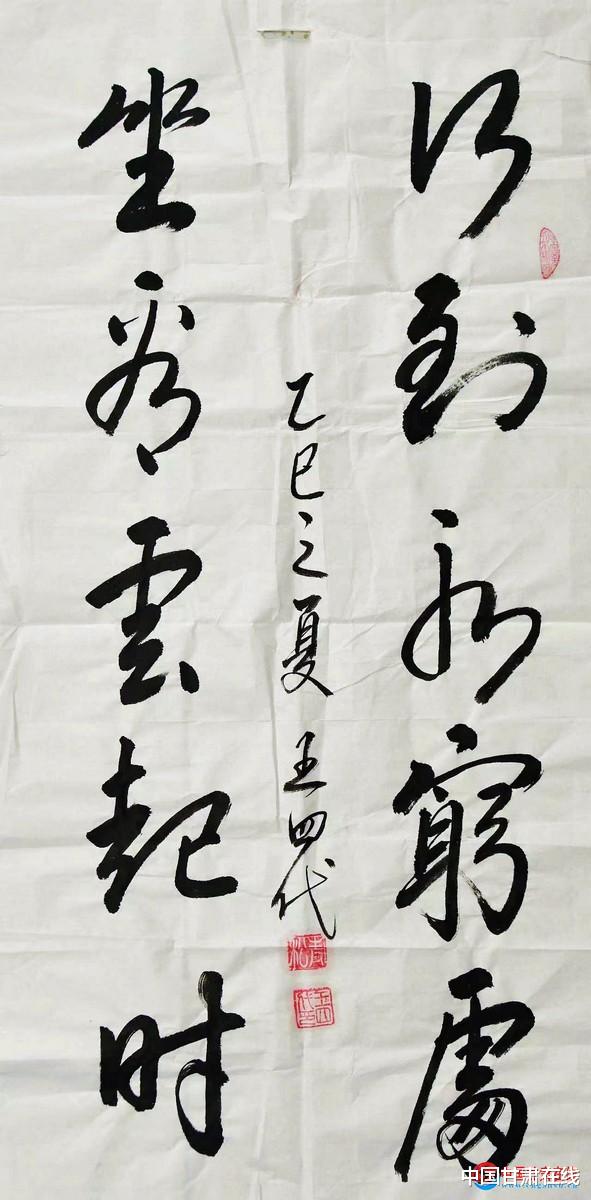 行到水窮處
坐看雲起时
乙巳之夏 王四代
中国甘肃在线